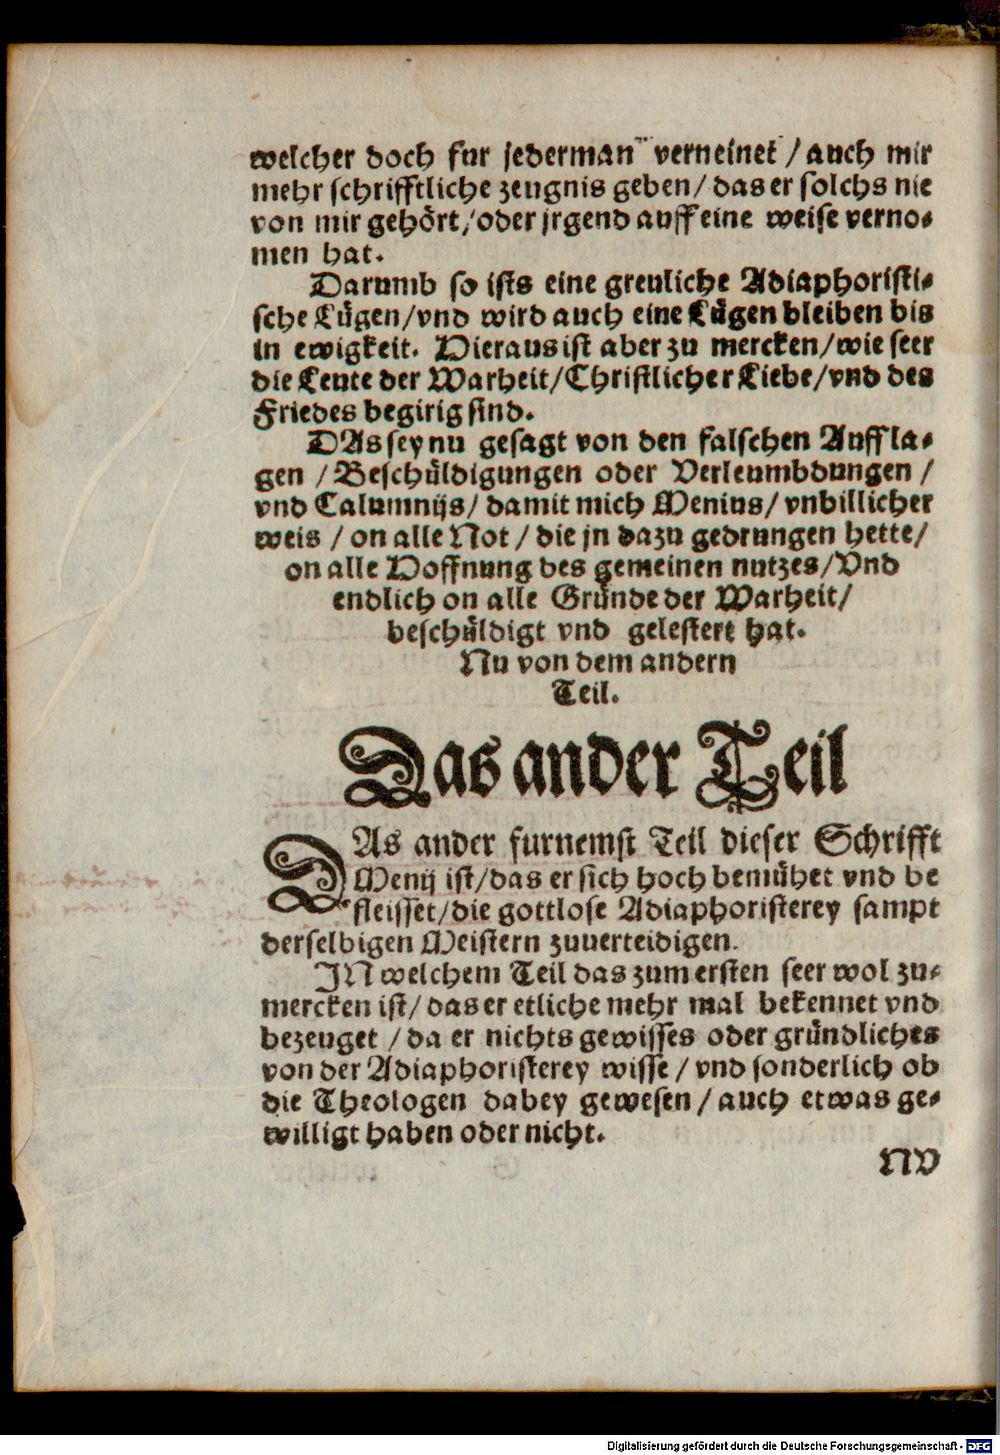 welcher doch fur jederman verneinet / auch mir
mehr schrifftliche zeugnis geben / das er solchs nie
von mir gehört / oder jrgend auff eine weise verno-
men hat.
Darumb so ists eine greuliche Adiaphoristi-
sche Lügen / vnd wird auch eine Lügen bleiben bis
in ewigkeit. Hieraus ist aber zu mercken / wie seer
die Leute der Warheit / Christlicher Liebe / vnd des
Friedes begirig sind.
DAs sey nu gesagt von den falschen Auffla-
gen / Beschüldigungen oder Verleumbdungen /
vnd Calumnijs / damit mich Menius / vnbillicher
weis / on alle Not / die jn dazu gedrungen hette /
on alle Hoffnung des gemeinen nutzes / Vnd
endlich on alle Gründe der Warheit /
beschüldigt vnd gelestert hat.
Nu von dem andern
Teil.
Das ander Teil
DAs ander furnemst Teil dieser Schrifft
Menij ist / das er sich hoch bemühet vnd be
fleisset / die gottlose Adiaphoristerey sampt
derselbigen Meistern zuuerteidigen.
JN welchem Teil das zum ersten seer wol zu-
mercken ist / das er etliche mehr mal bekennet vnd
bezeuget / da er nichts gewisses oder gründliches
von der Adiaphoristerey wisse / vnd sonderlich ob
die Theologen dabey gewesen / auch etwas ge-
willigt haben oder nicht.
NV
Digitalisierung gefördert durch die Deutsche Forschungsgemeinschaft - DFG